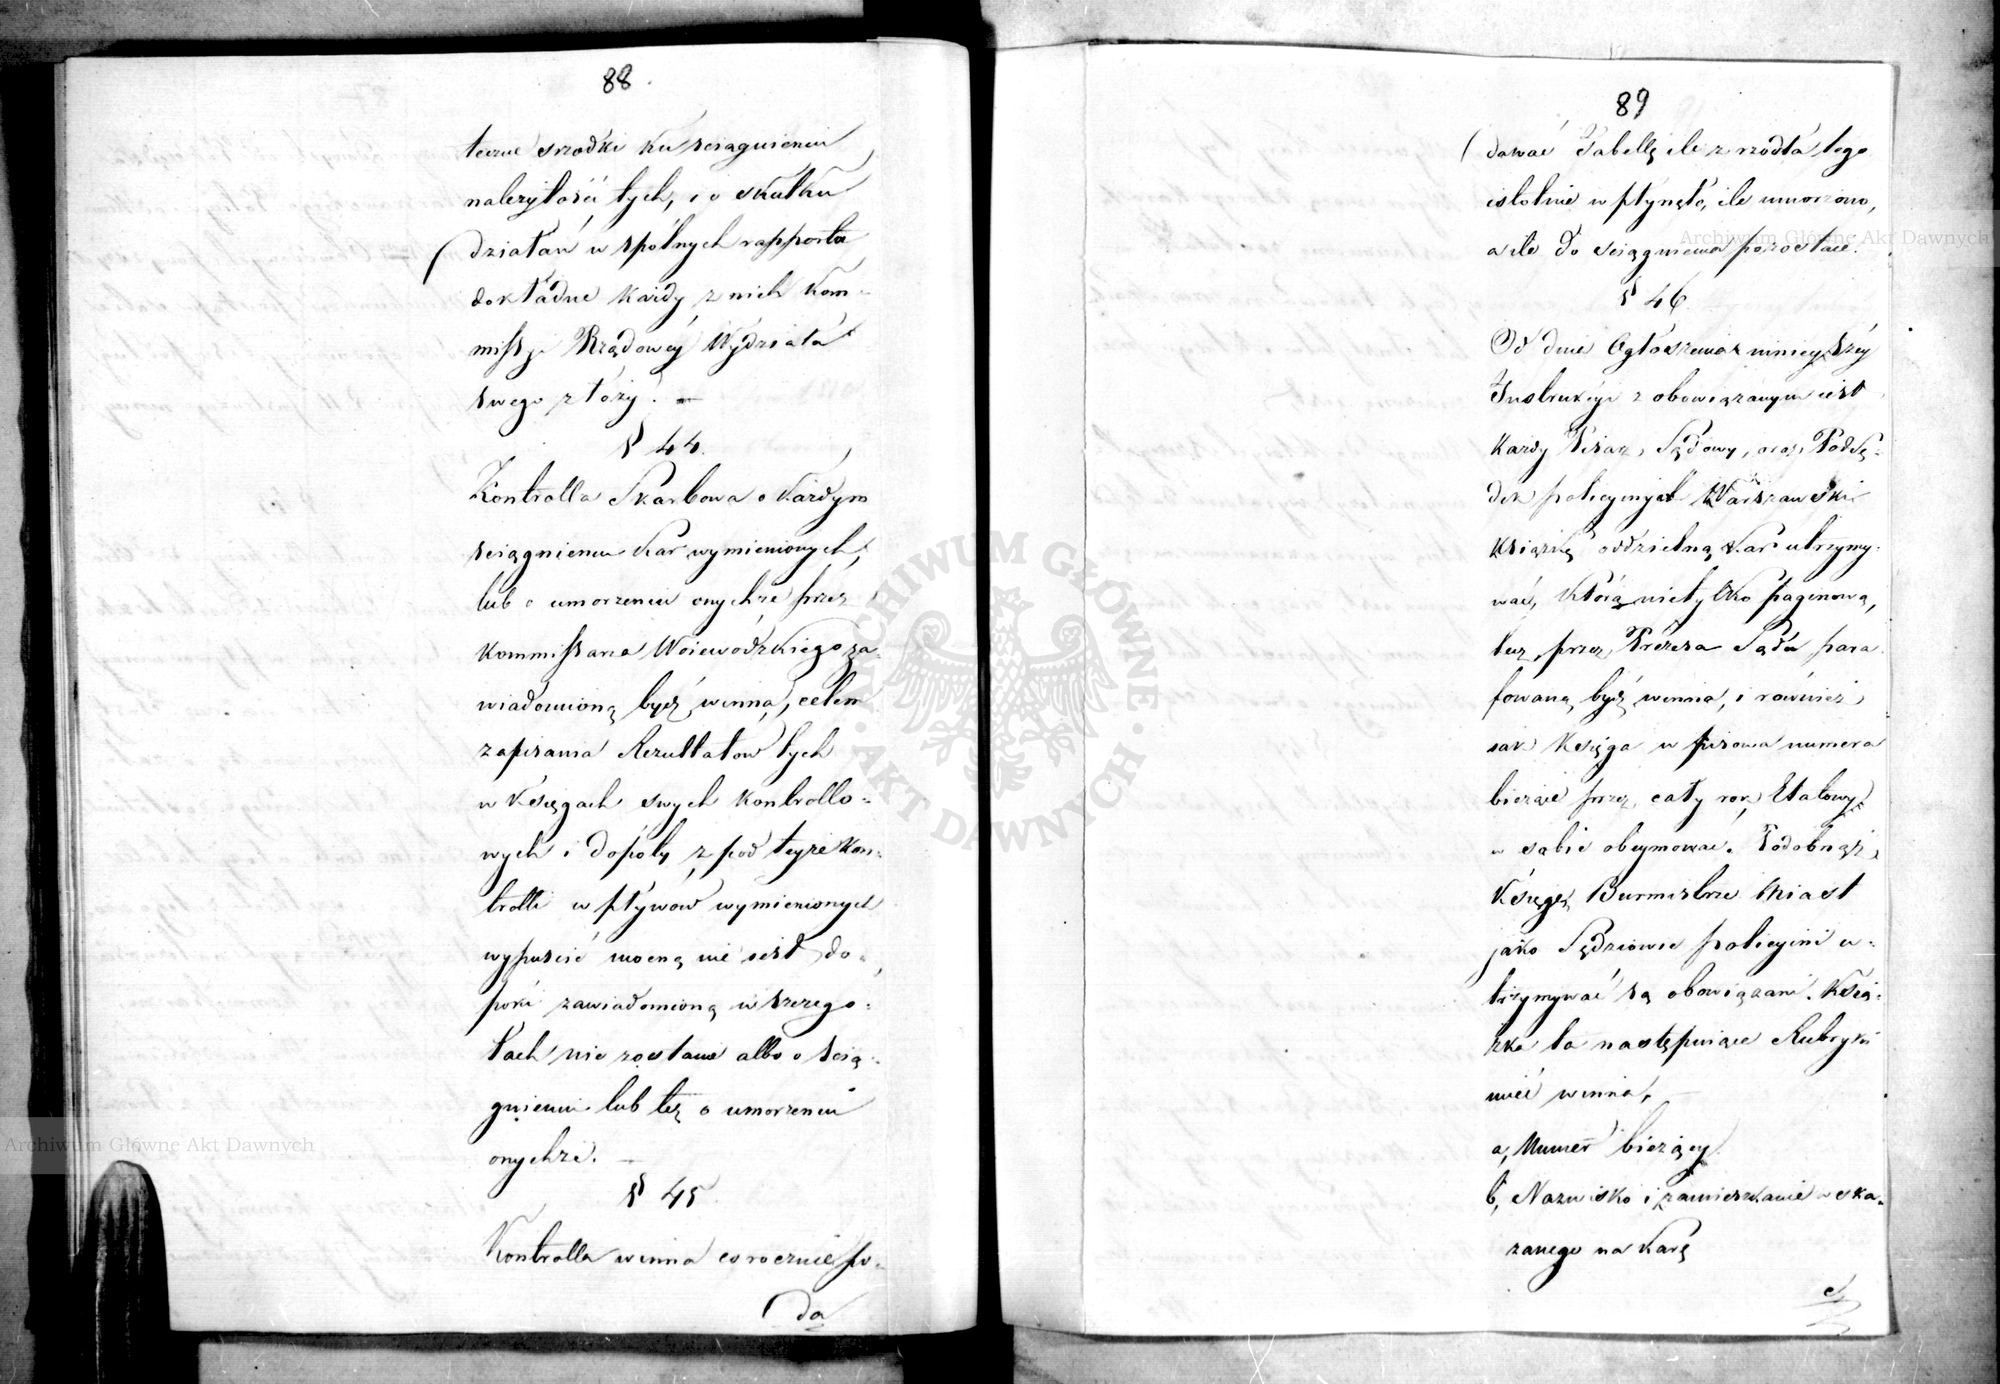 88
teczne srzodki ku sciągnieniu
nalezytości tych, i o skutku
działań wspólnych rapporta
dokładne każdy z nich Kom-
missyi Rządowey Wydziału
swego złoży. —
§ 44.
Kontrolla Skarbowa o każdym
sciągnieniu kar wymienionych,
lub o umorzeniu onychże przez
Kommissarza Woiewódzkiego za-
wiadomioną bydź winna, celem
zapisania Rezultatow tych
w Księgach swych kontrollo-
wych i dopóty z pod teyże Kon-
trolli wpływów wymienionych
wypuścić mocną nie iest do-
poki zawiadomioną w szczegó-
łach nie zostanie albo o scią-
gnieniu lub też o umorzeniu
onychże. —
§ 45.
Kontrolla winna corocznie po-
da
89
dawać Tabellę ile z zrzódła tego
istotnie wpłynęło, ile umorzono,
a ile do sciągnienia pozostaie.
§ 46
Od dnia Ogłoszenia ninieyszey
Instrukcyi zobowiązanym iest
Kazdy Pisarz Sądowy, oraz Podsę-
dek policyinych Warszawski
książkę oddzielną Kar utrzymy-
wać, która nietylko paginową,
lecz przez Prezesa Sądu para-
fowaną bydź winna, i również
iak Księga wpisowa numera
bieżące przez cały rok Etatowy
w sobie obeymować. Podobnąż
Księgę Burmistrze Miast
jako Sędziowie policyini u-
trzymywać są obowiązani. Książ-
żka ta następuiące Rubryki
mieć winna, —
a, Numer bieżący
b, Nazwisko i zamieszkanie wska-
zanego na karę
c
Archiwum Główne Akt Dawnych
Archiwum Główne Akt Dawnych
ARCHIWUM GŁÓWNE · AKT DAWNYCH ·